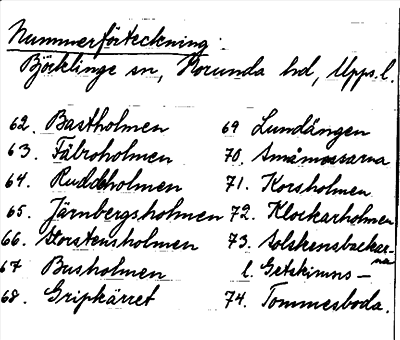 Nummerförteckning:
Björklinge sn, Norunda hd, Upps. l.
62. Bastholmen
63. Fälroholmen
64. Ruddholmen
65. Järnbergsholmen
66. Storstensholmen
67 Busholmen
68. Gripkärret
69 Lundängen
70. Småmossarna
71. Korsholmen
72. Klockarholmen
73. Solskensbackarna
l. Getskinns-
74. Tommesboda.